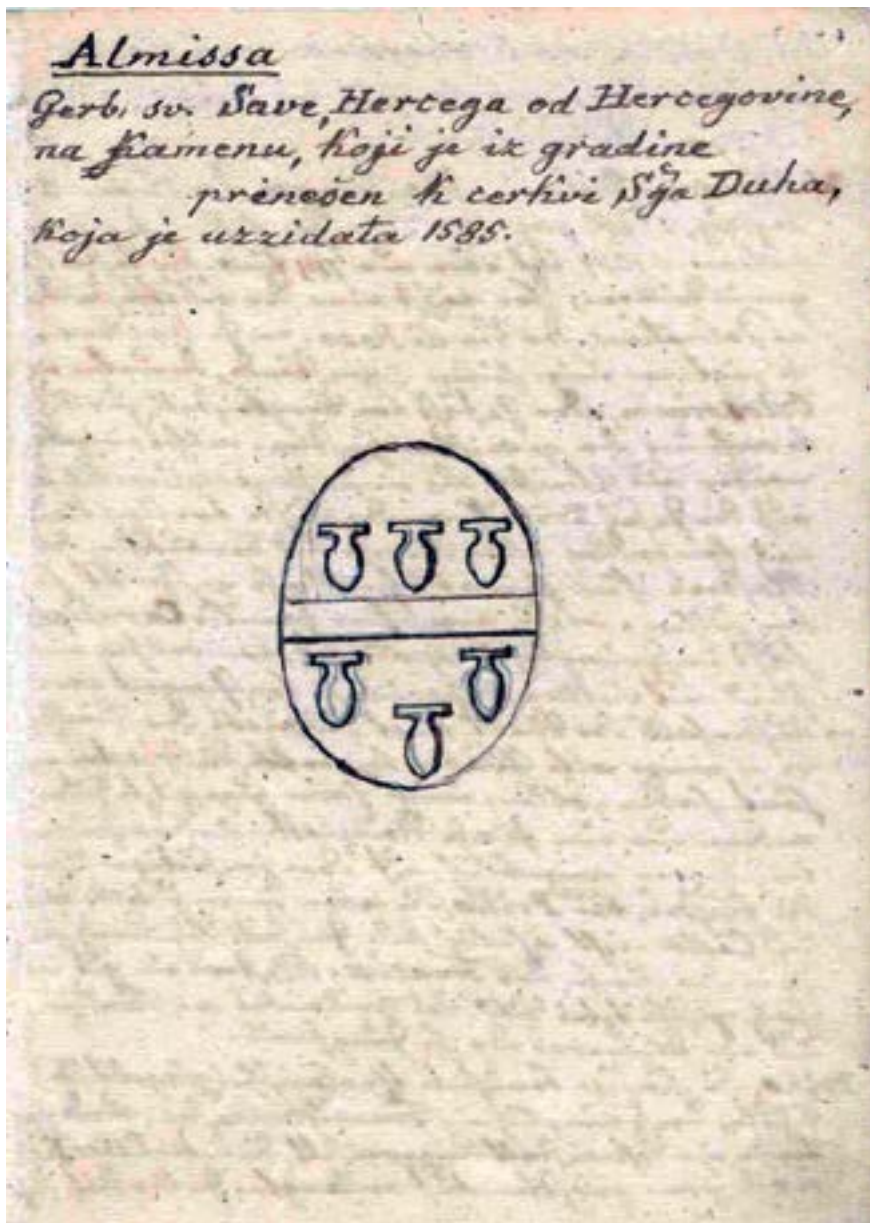 Almissa
Gerb, sv. Save, Hercega od Hercegovine,
na Kamenu, koji je iz gradine
prenešen k cerkvi, Duha,
koja je uzzidata 1585.